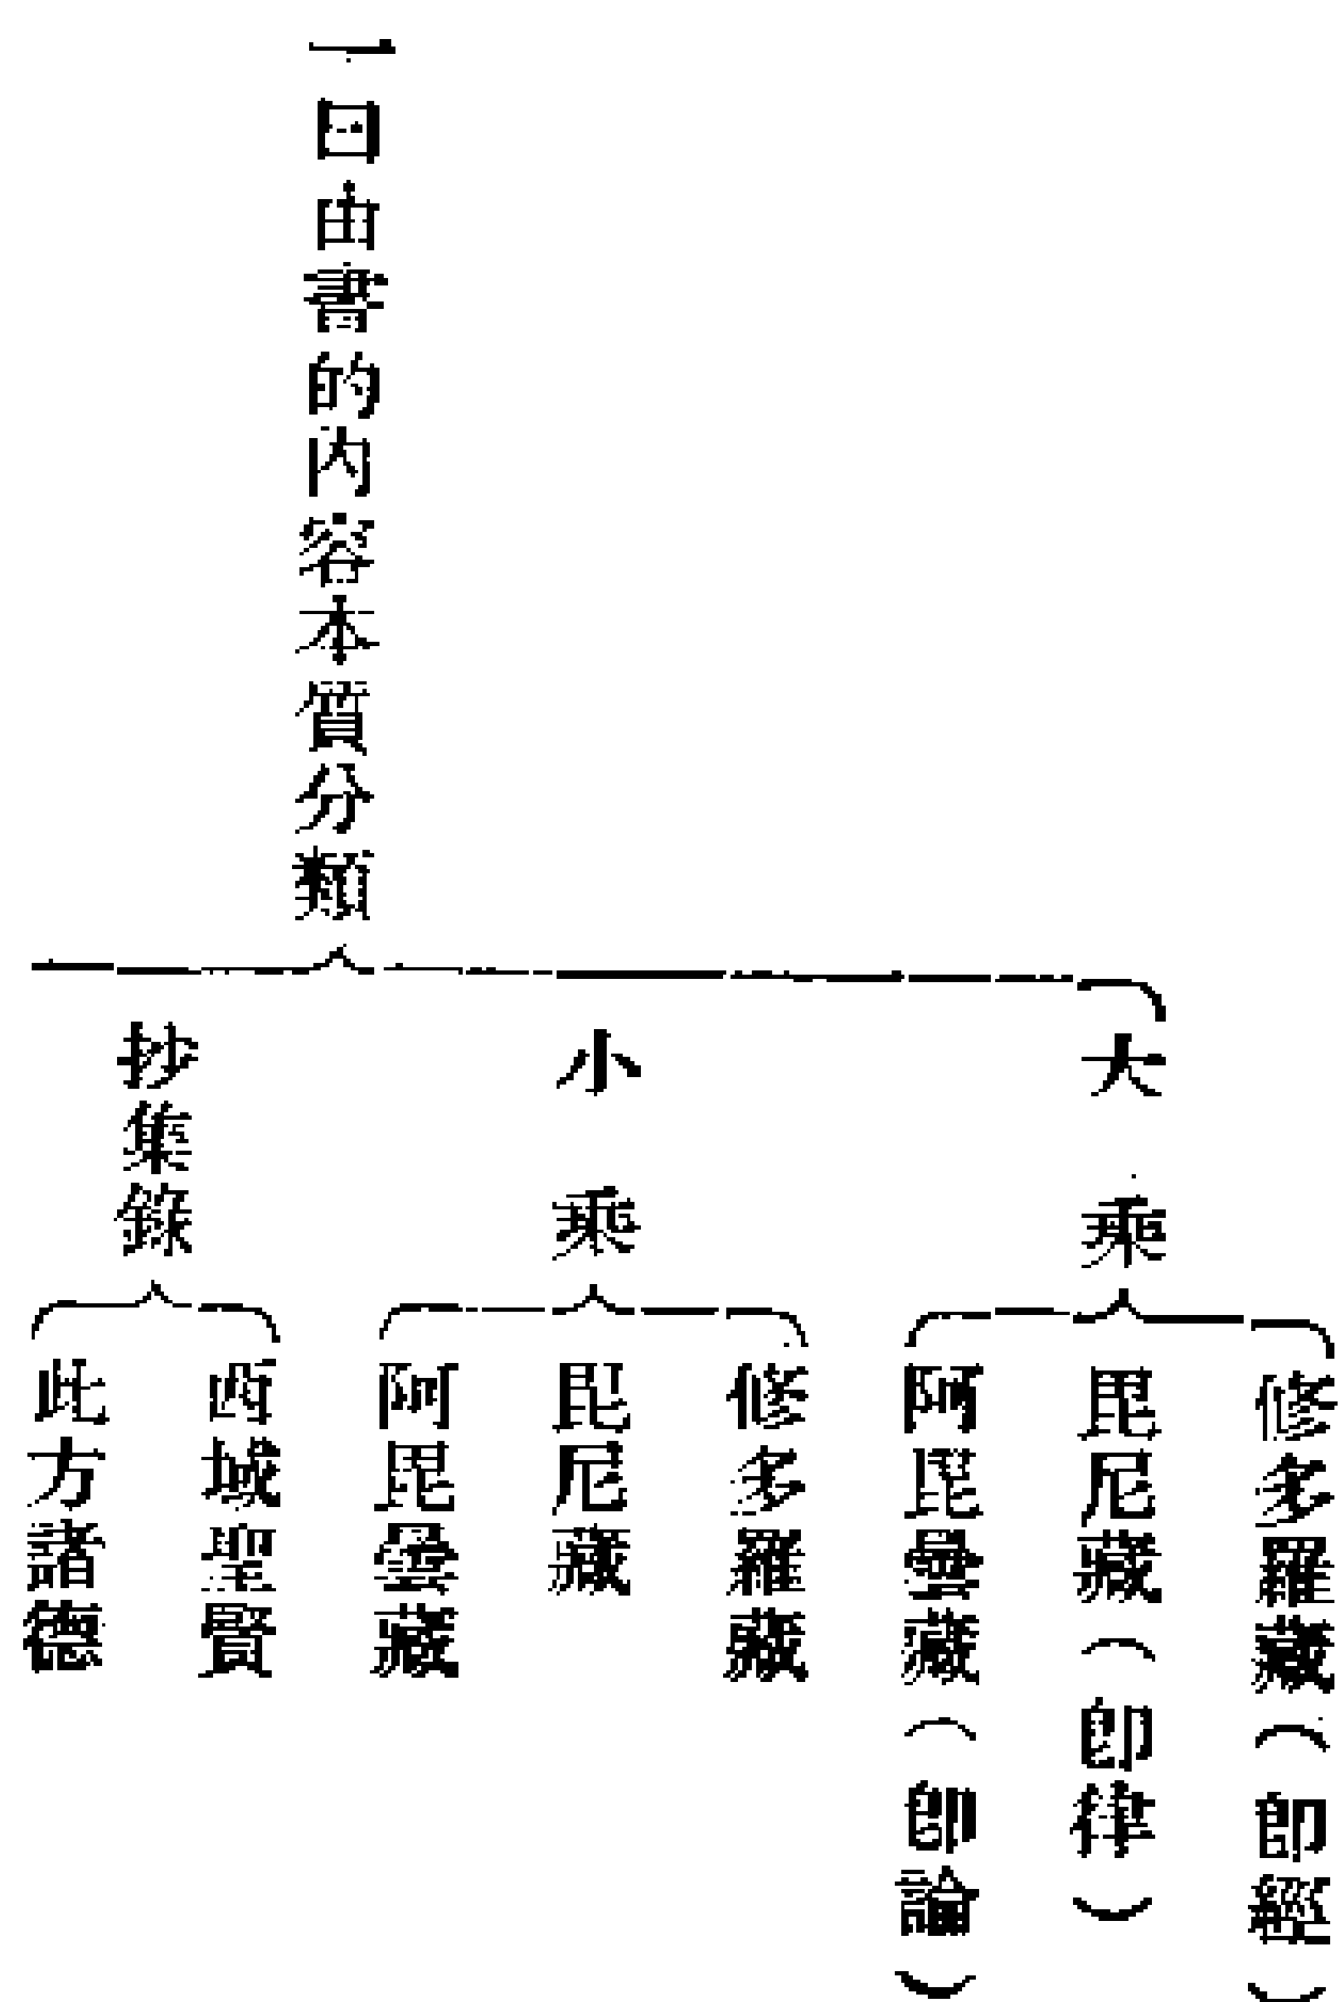 一曰由書的內容本質分類
大乘
修多羅藏(即經)
毘尼藏(即律)
阿毘曇藏(即論)
小乘
修多羅藏
毘尼藏
阿毘曇藏
抄集錄
西域聖賢
此方諸德